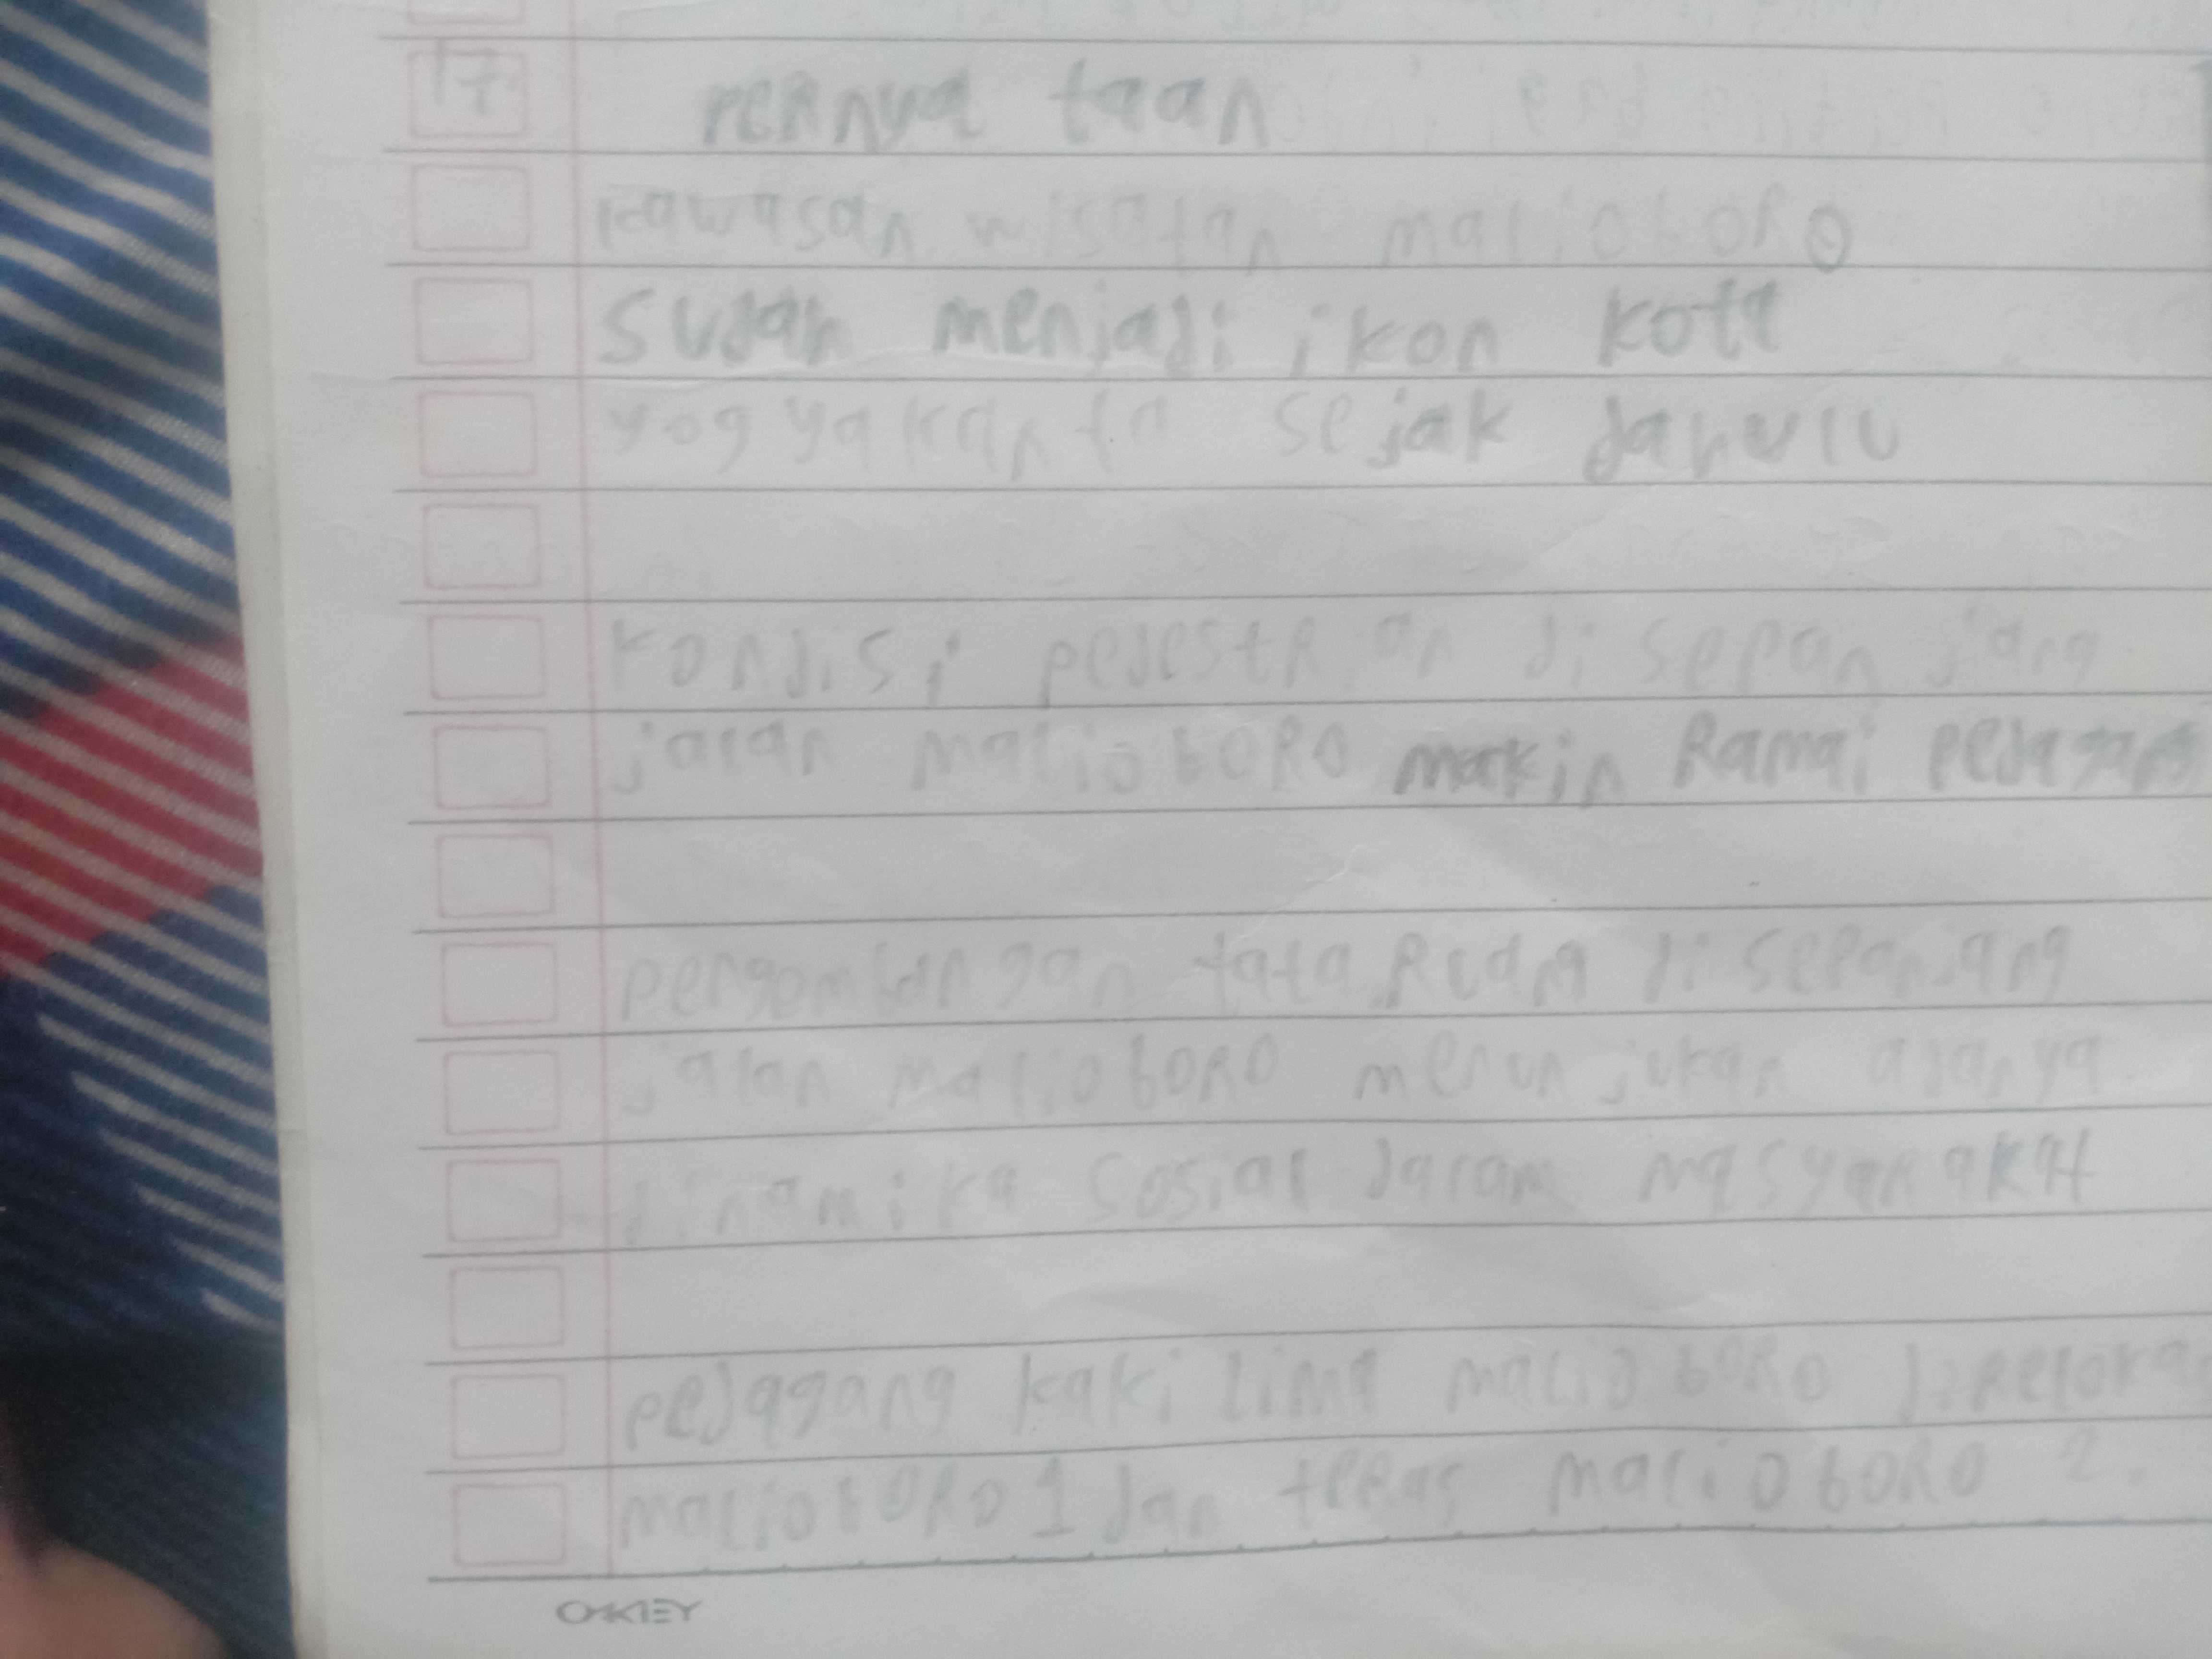 17.
pernya taan
kawasan wisatan malioboro
Sudah menjadi ikon kota
yogyakarta sejak dahulu
kondisi pedestrian di sepan jang
jalan malioboro makin Ramai pedagang
pengembangan tata Ruang di sepanjang
jalan malioboro menunjukan adanya
dinamika sosial dalam masyarakat
pedagang kaki lima malioboro
malioboro 1 dan teras malioboro 2.
OKEY